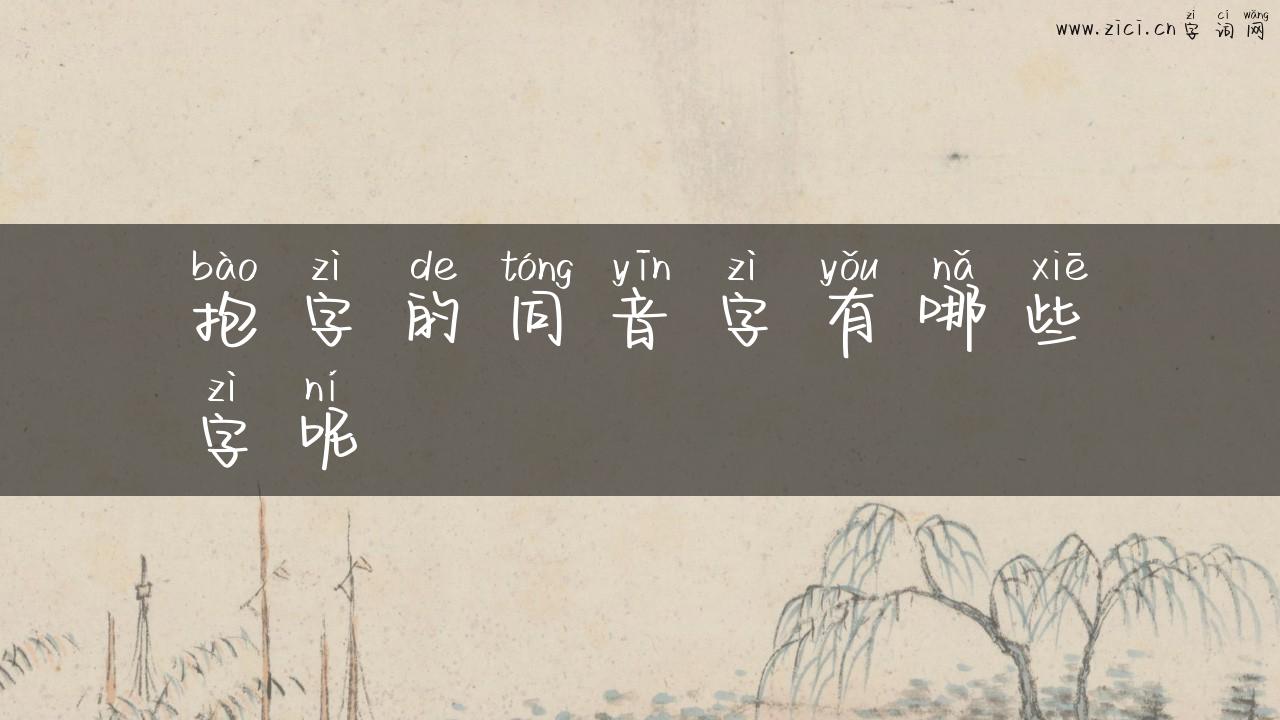 zì cí wǎng
www.zici.cn 字 词 网
bào zì de tóng yīn zì yǒu nǎ xiē
抱 字 的 同 音 字 有 哪 些
zì ní
字 呢